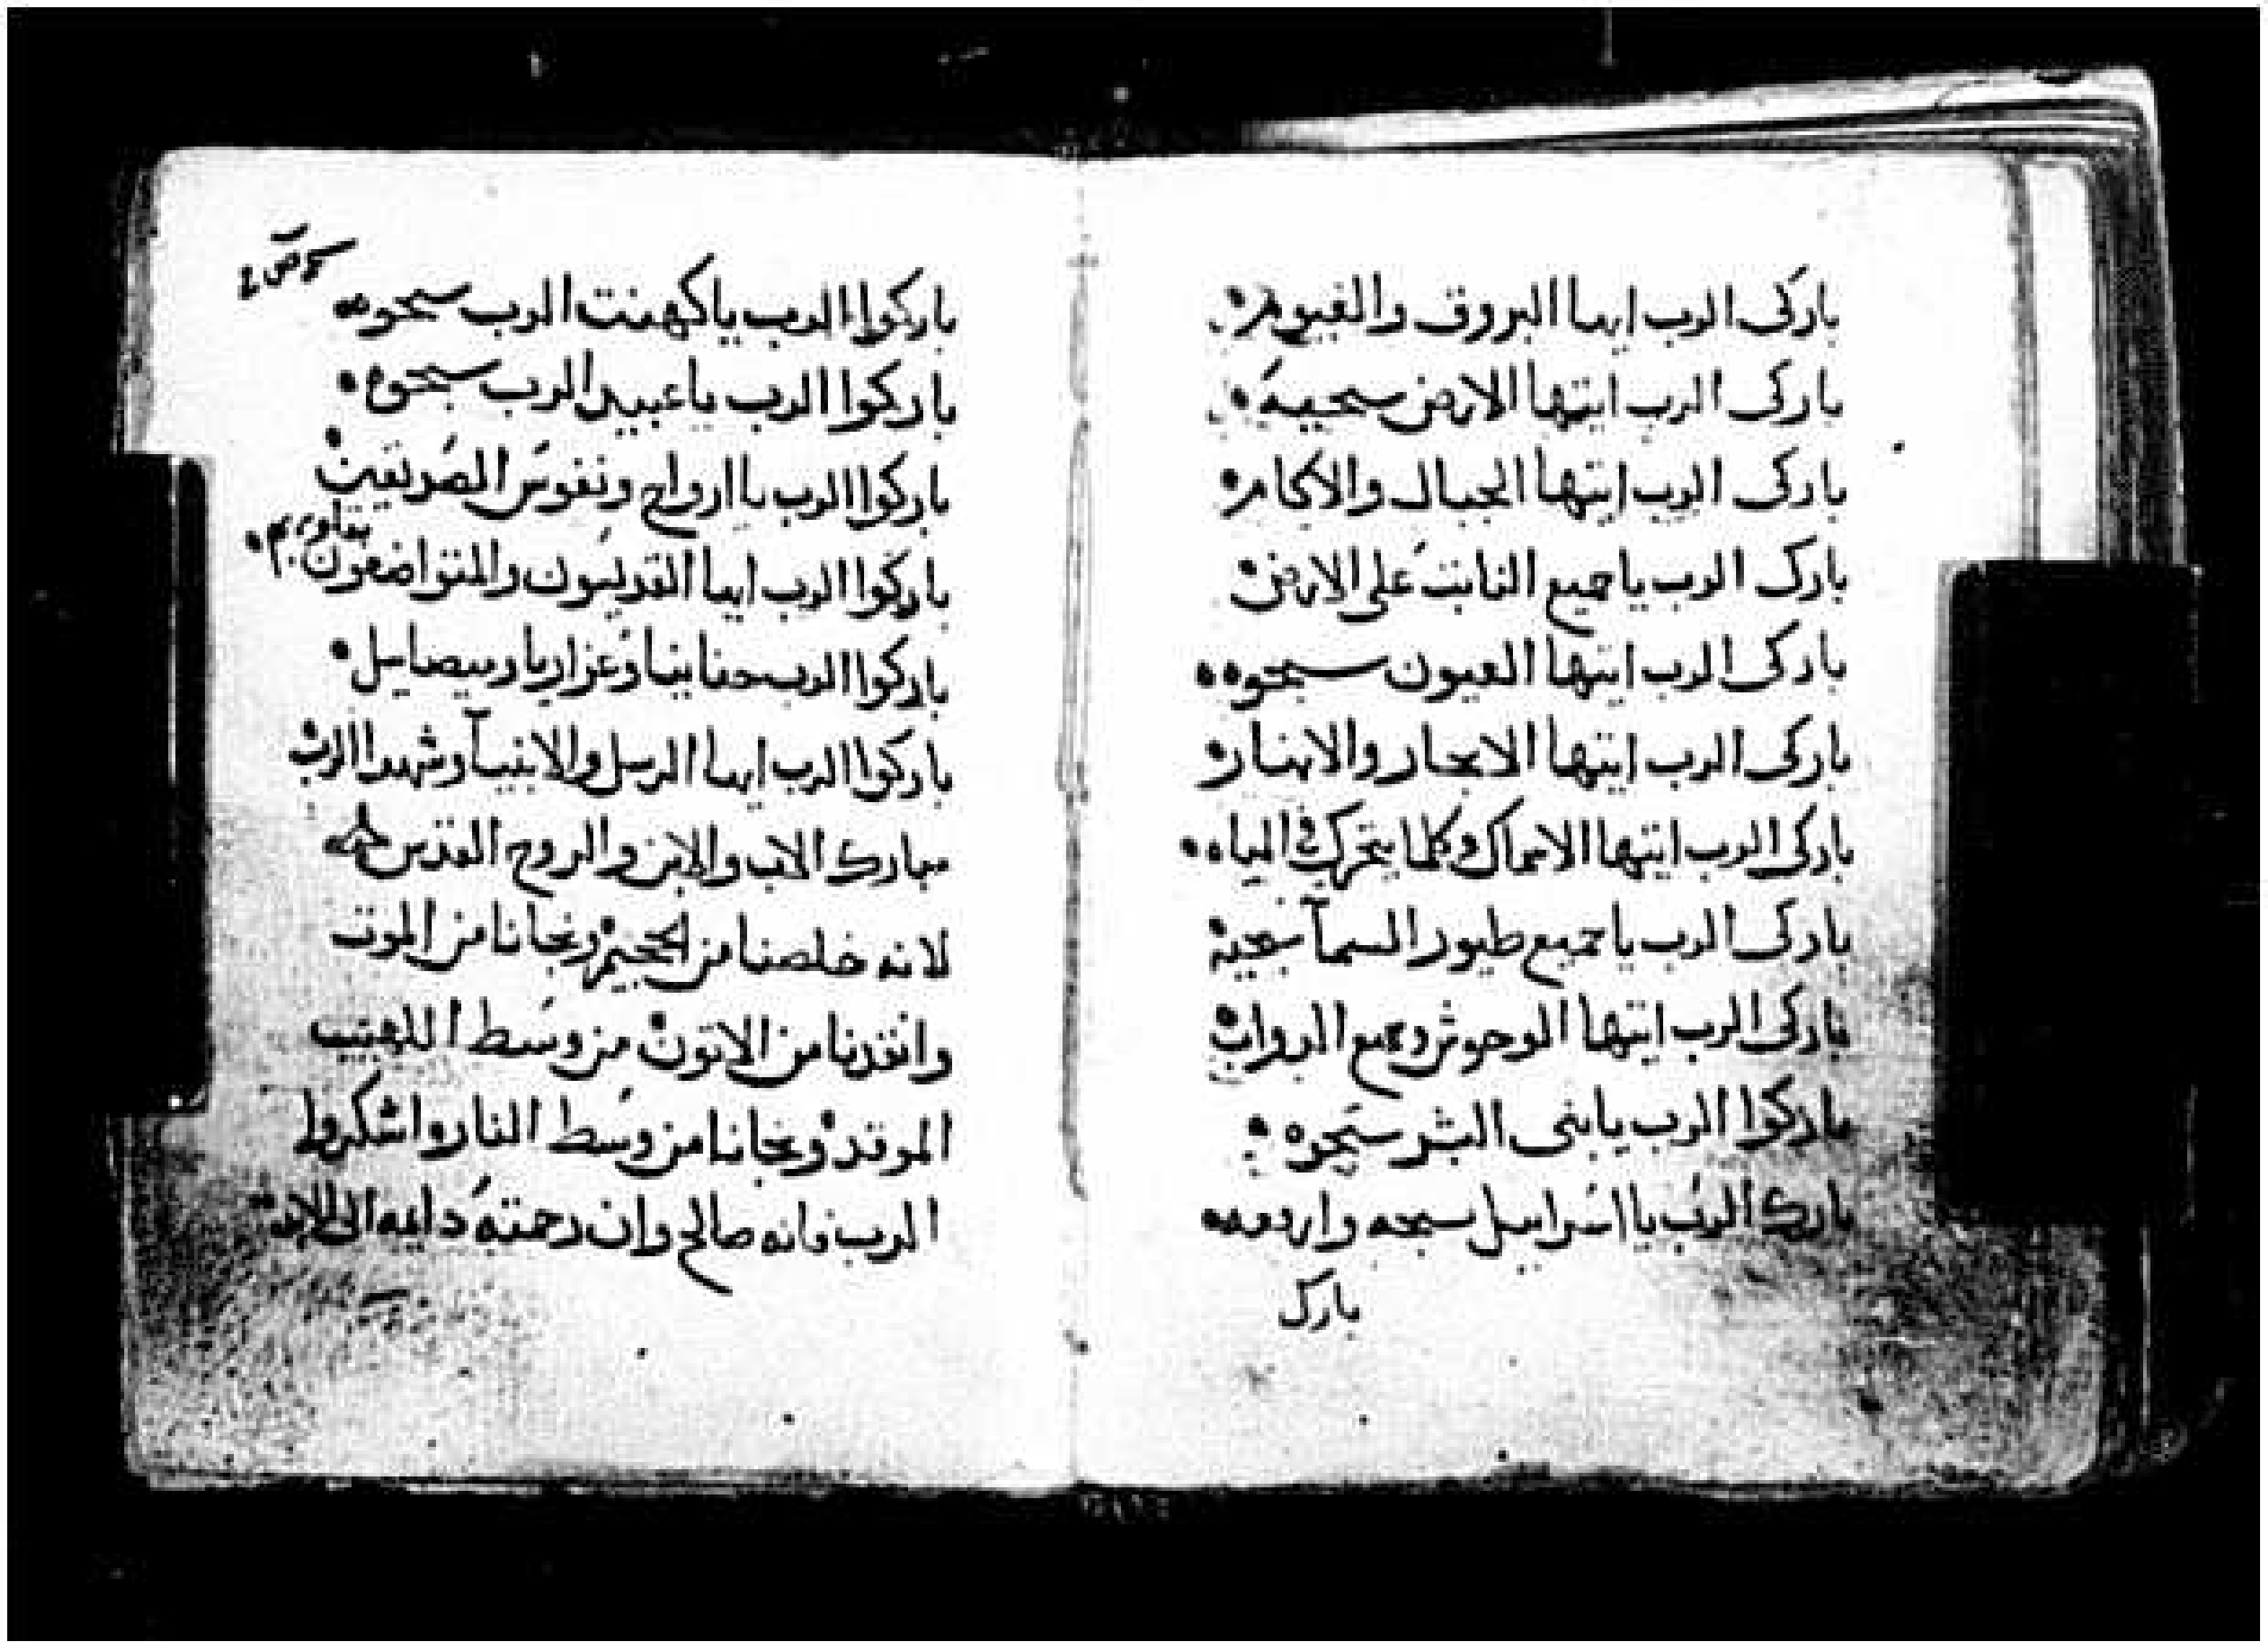 باركى الرب ايها البروق والغيوم
باركى الرب ايتها الارض سبحيه
باركى الرب ايتها الجبال والاكام
بارك الرب ياجميع النابت على الارض
باركى الرب ايتها العيون سبحوه
باركى الرب ايتها الابحار والانهار
باركى الرب ايتها الاسماك وكلما يتحرك فى المياه
باركى الرب ياجميع طيور السمآ سبحيه
باركى الرب ايتها الوحوش وجميع الدواب
باركوا الرب يابنى البشر سبحوه
بارك الرب يا اسراييل سبحه وارفعه
بارك
باركوا الرب ياكهنت الرب سبحوه
باركوا الرب ياعبيد الرب سبحوه
باركوا الرب يا ارواح ونفوس الصديقين
باركوا الرب ايها القديسون والمتواضعون
باركوا الرب حنانيا وعزاريا وميصاييل
باركوا الرب ايها الرسل والانبيآ وشهدا الرب
مبارك الاب والابن والروح القدس
لانه خلصنا من الجحيم ونجانا من الموت
وانقذنا من الاتون من وسط اللهيب
الموقد ونجانا من وسط النار واشكروا
الرب فانه صالح وان رحمته دايمه الى الابد